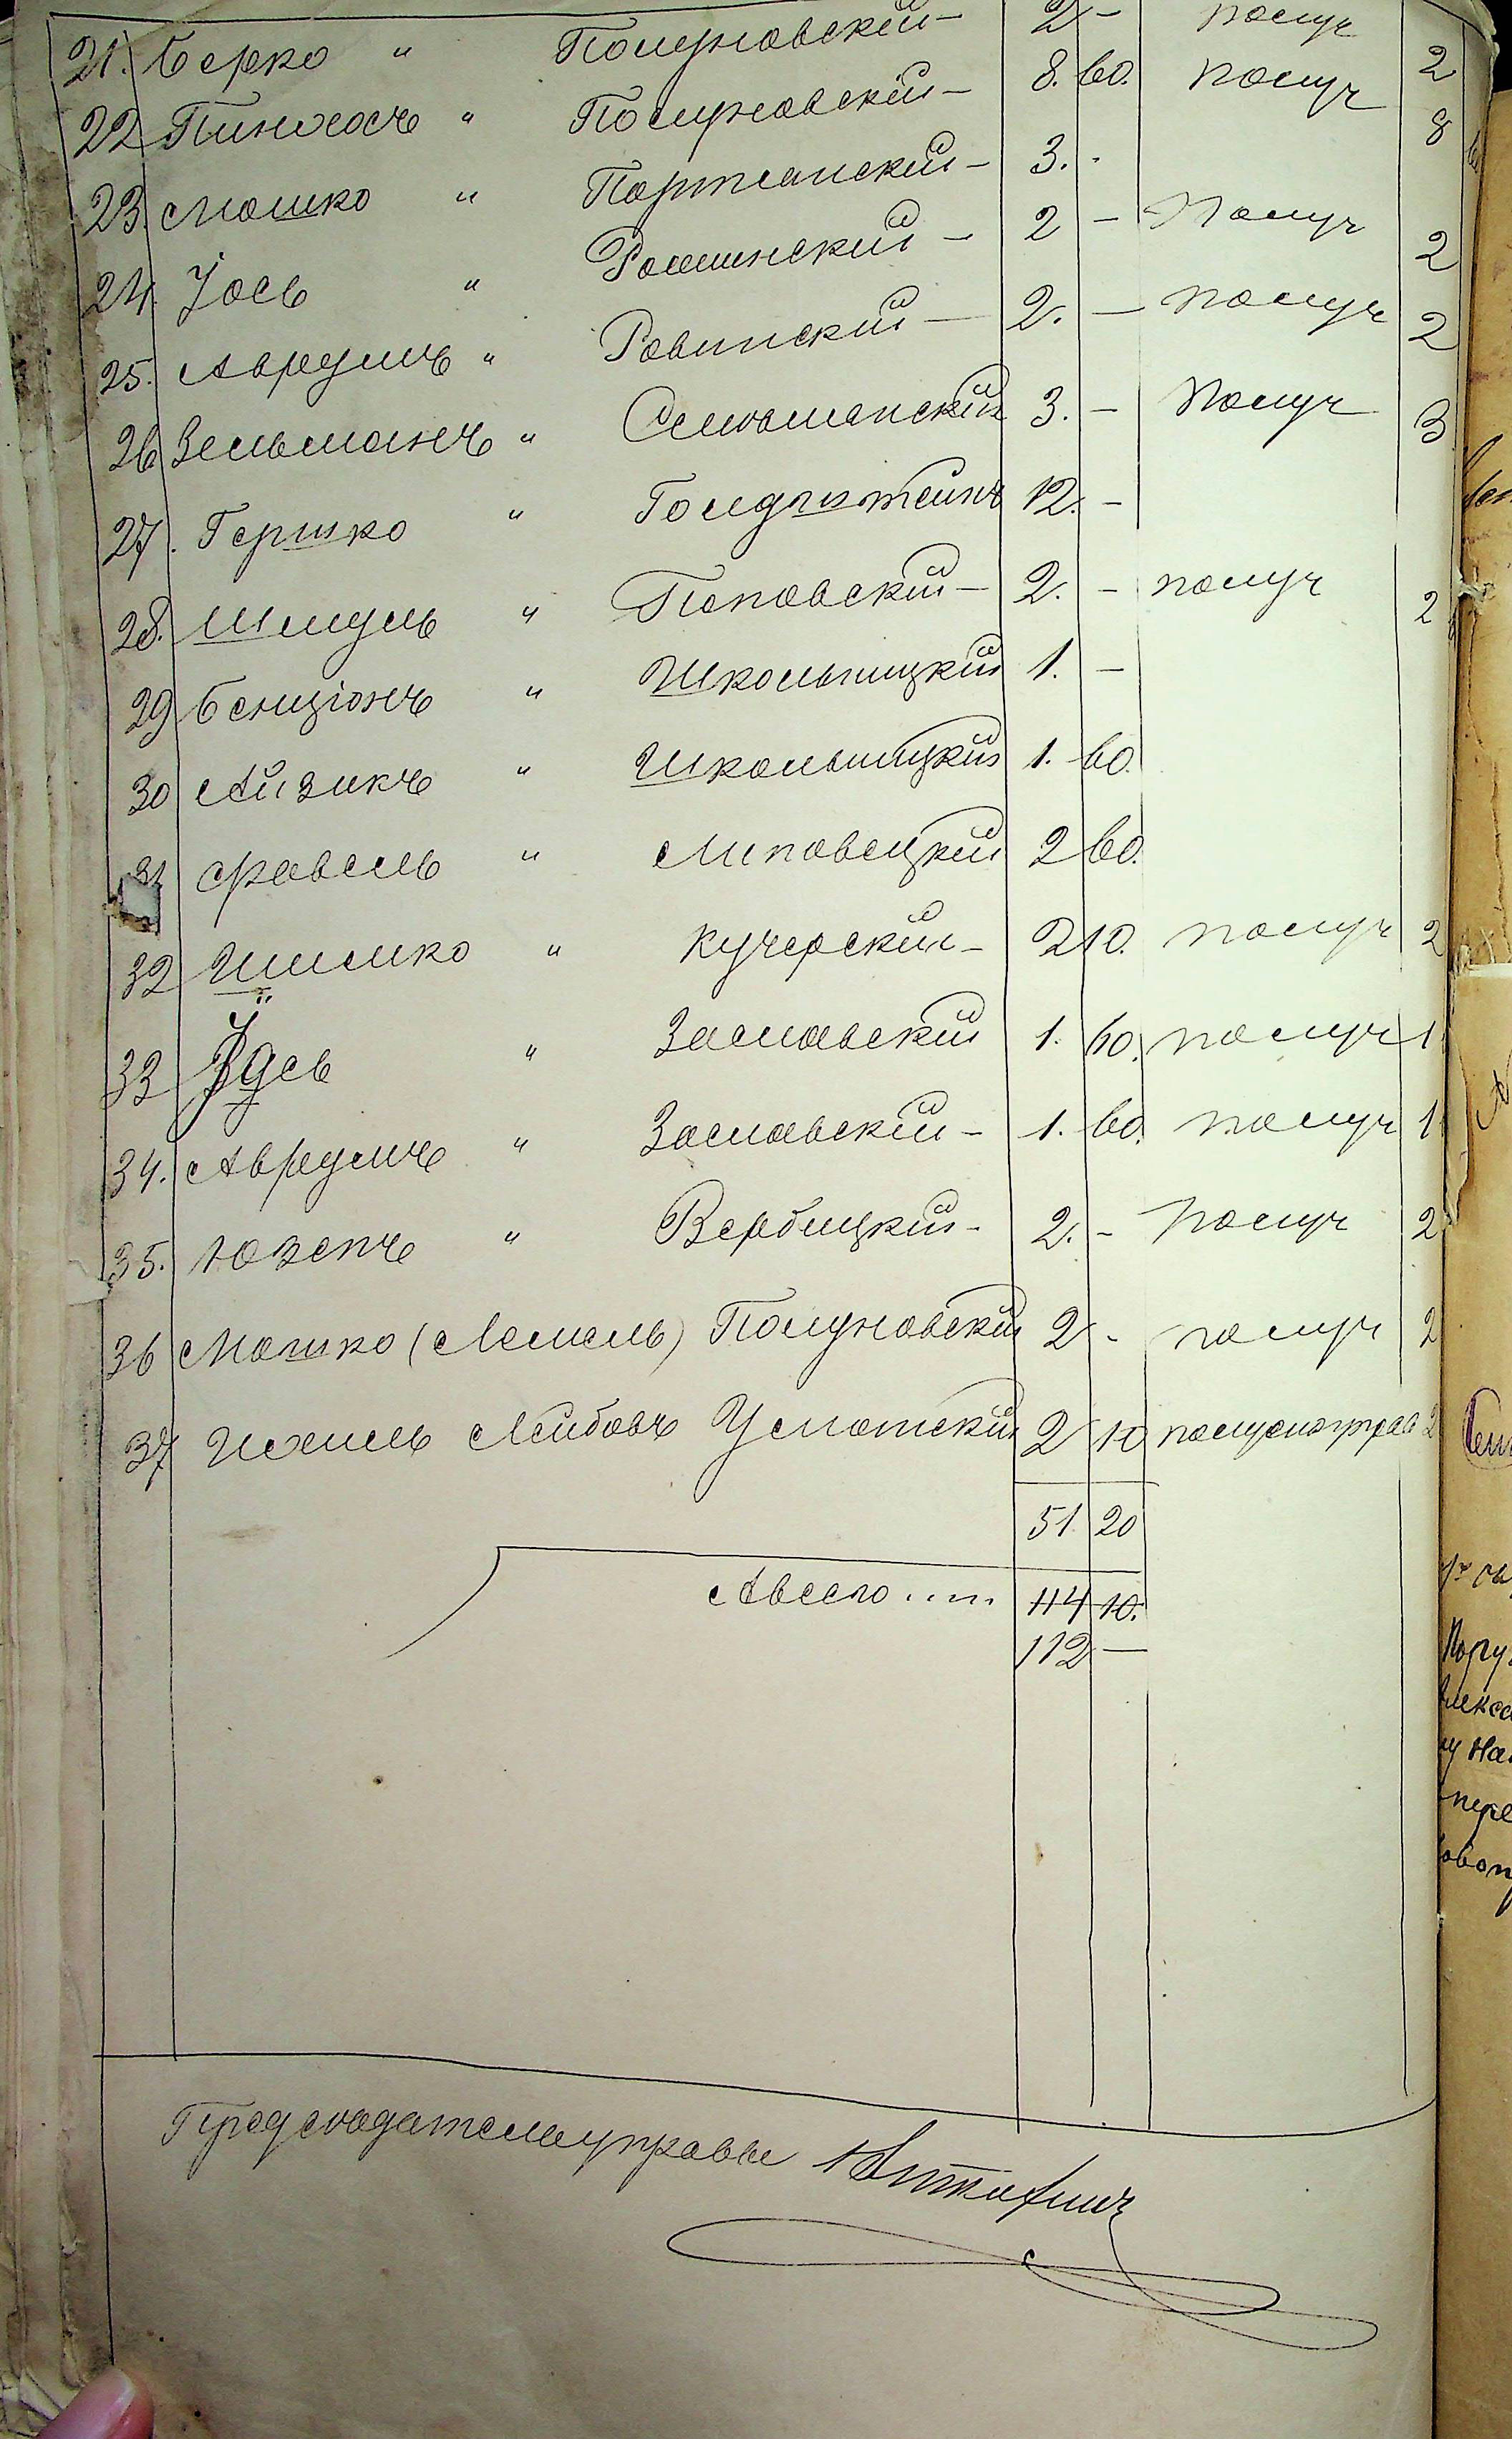 21. Берко " Полуновскій – 2 – получ 2
22 Пинхосъ " Полуновскій – 8. 60. получ 8
23. Мошко " Портнанскій – 3. -
24. Іось " Рашинскій – 2 – Получ 2
25. Аврумъ " Ровинскій – 2. – получ 2
26 Зельманъ " 3. – Получ 3
27. Гершко " Голдштейнъ 12. –
28. Шмуль " Поповскій – 2. – получ 2
29 Бенціонъ " Школьницкій 1. –
30 Айзикъ " Школьницкій 1. 60.
31 Фавель " Липовецкій 2 60.
32 Шимко " Кучерскій – 2 10. получ 2
33 " Заславскій 1. 60. получ 1
34. Аврумъ " Заславскій – 1. 60. получ 1
35. Юзепъ " Вербицкій – 2. – Получ 2
36 Мошко (Лемель) Полуновскій 2 - получ 2
37 Ихиль Лейбовъ 2 10 2
51. 20
А всего .... 114 10.
112 —
Председатель управы